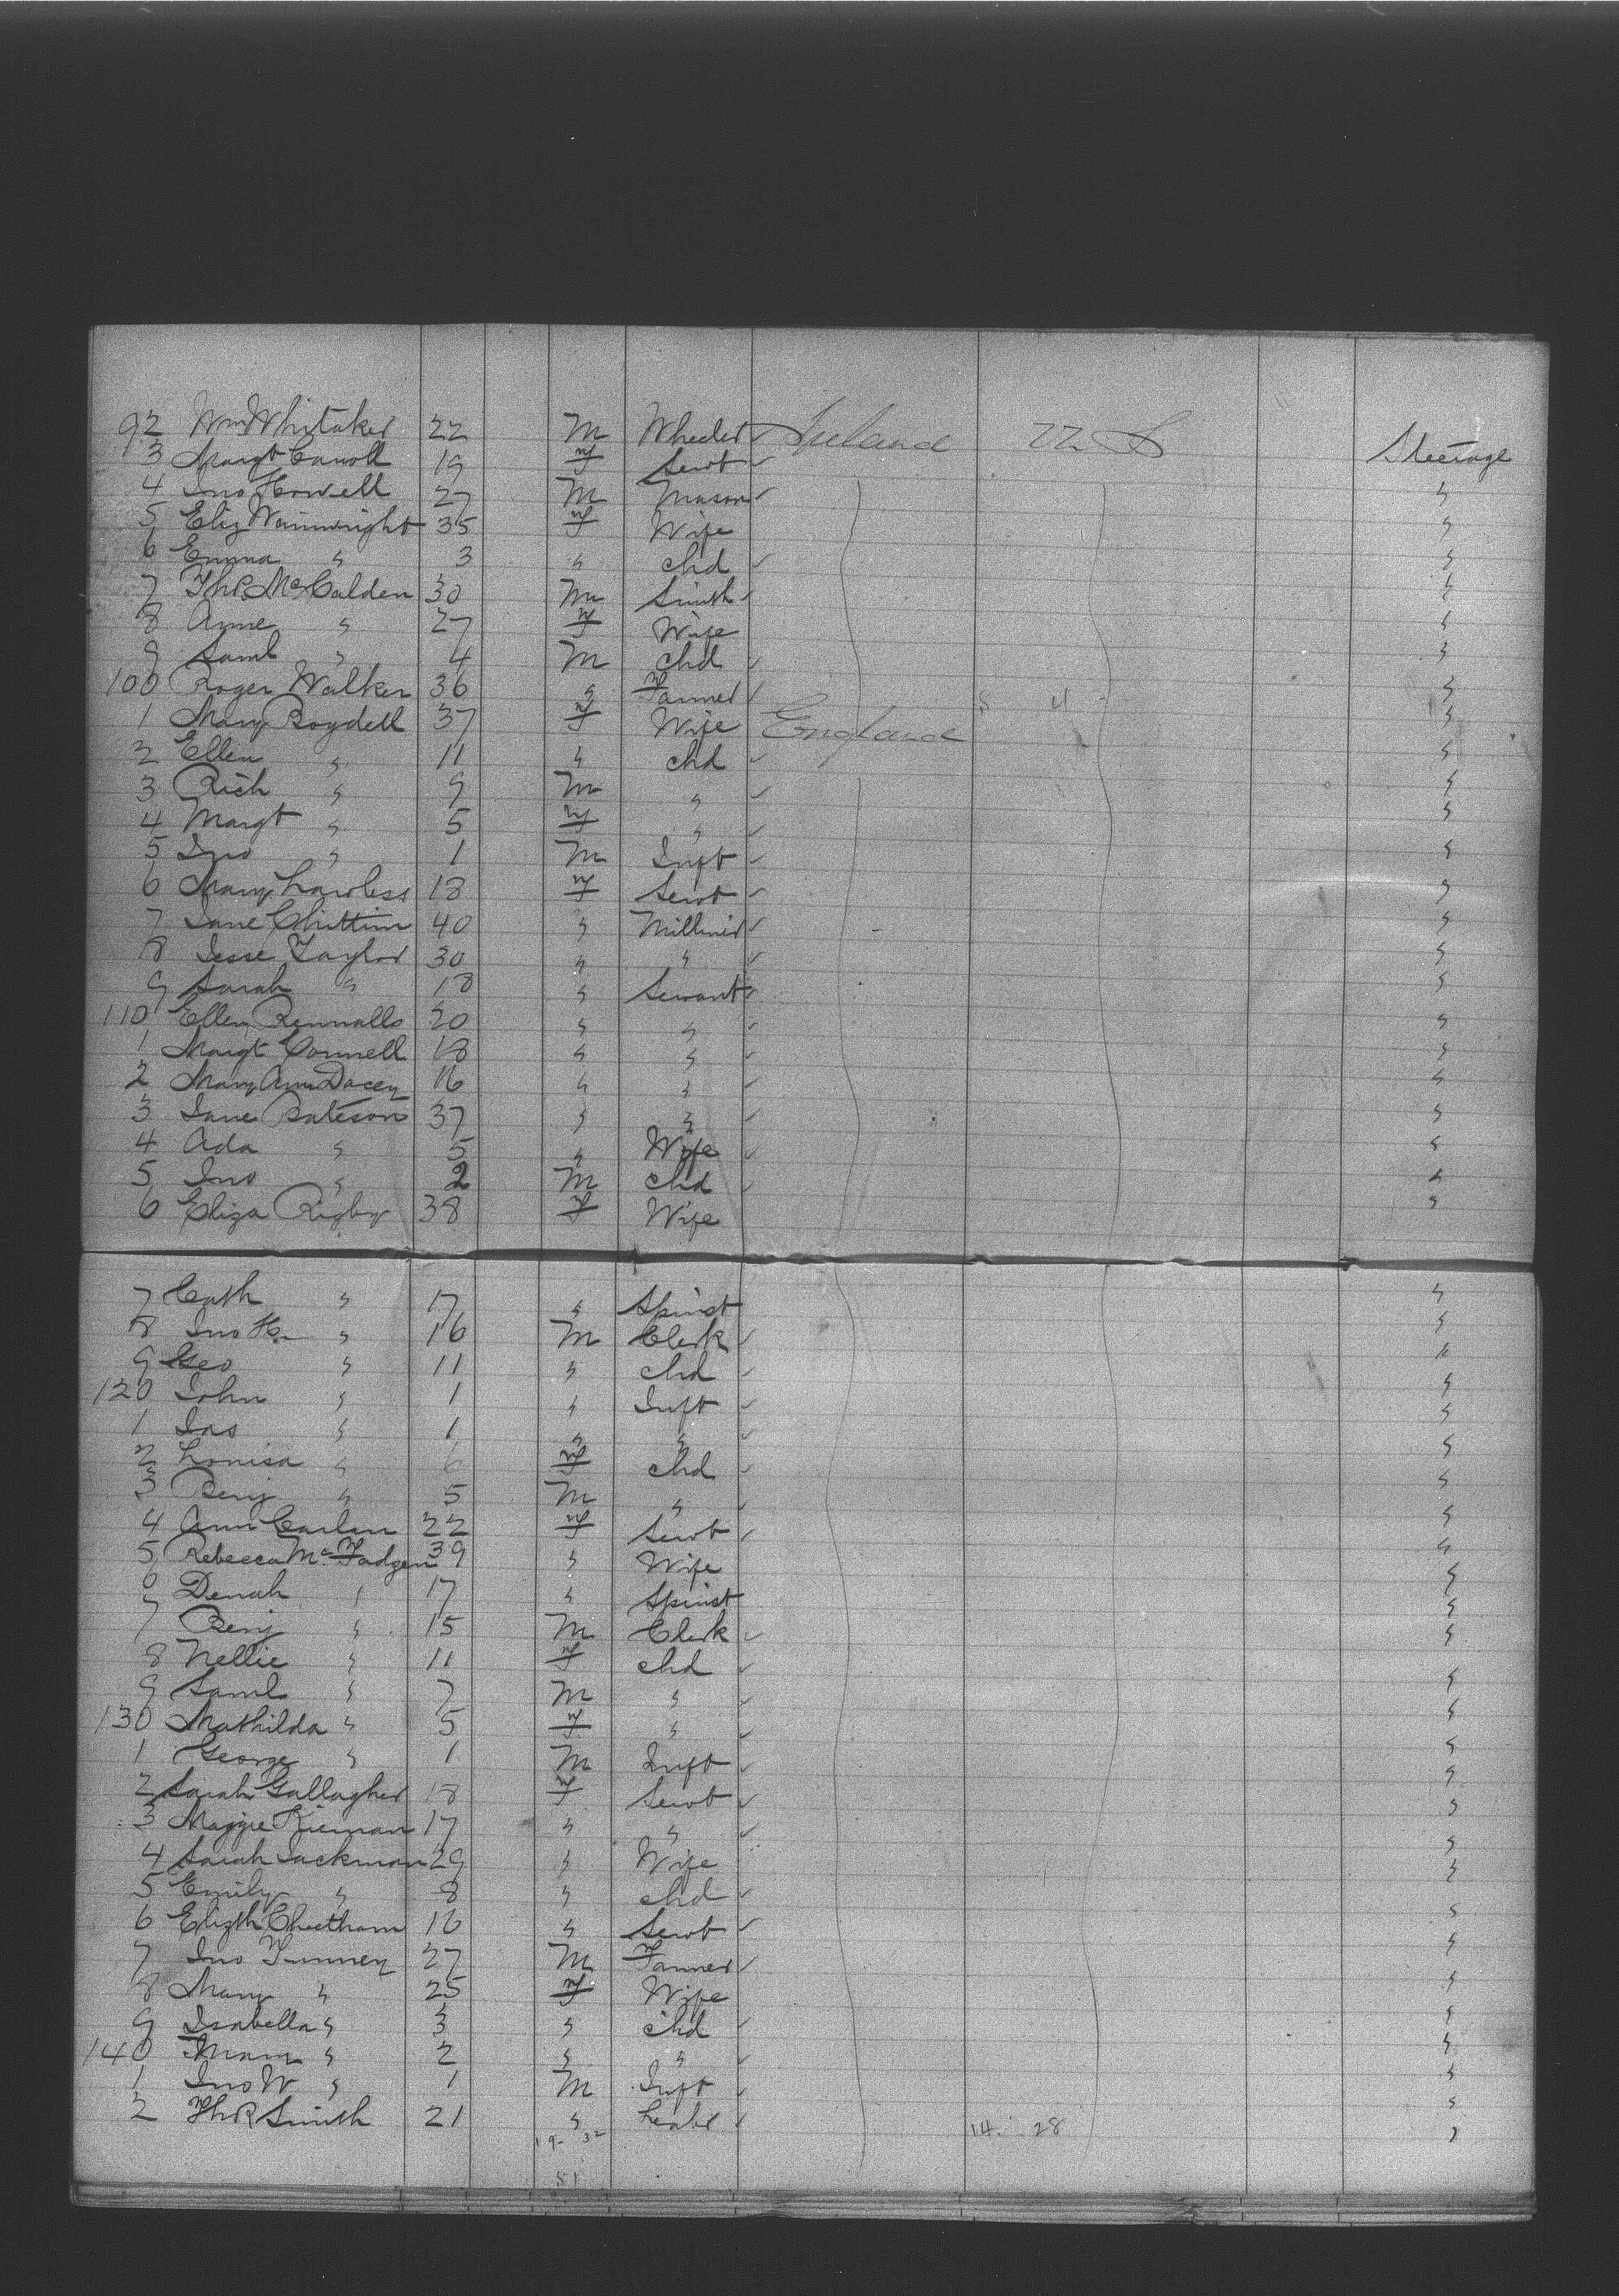 92 Wm Whitaker 22 M Wheeler Ireland 22 S Steerage
3 Margt Caroll 19 f Servt
4 Jno Howell 27 M Mason "
5 Eliz Wainwright 35 f Wife "
6 Emma " 3 " chd "
7 Ths. McCalden 30 M Smith "
8 Anne " 27 f Wife "
9 Saml " 4 M chd "
100 Roger Walker 36 " Farmer "
1 Mary Boydell 37 f Wife England 4 "
2 Ellen " 11 " chd "
3 Rich " 9 M " "
4 Margt " 5 f " "
5 Jno " 1 M Inft "
6 Mary Lawless 18 f Servt "
7 Jane Chittim 40 " Milliner "
8 Jesse Taylor 30 " " "
9 Sarah " 18 " Servant "
110 Ellen Rennalls 20 " " "
1 Margt Connell 18 " " "
2 Mary Ann Dacey 16 " " "
3 Jane Bateson 37 " " "
4 Ada " 5 " Wife "
5 Jno " 2 M chd "
6 Eliza Rigby 38 f Wife "
7 Cath " 17 " Spinst "
8 Jno H. " 16 M Clerk "
9 Geo " 11 " chd "
120 John " 1 " Inft "
1 Jas " 1 " " "
2 Louisa " 6 f chd "
3 Benj " 5 M " "
4 Ann Carlan 22 f Servt "
5 Rebecca Mc Fadgen 39 " Wife "
6 Denah " 17 " Spinst "
7 Benj " 15 M Clerk "
8 Nellie " 11 f chd "
9 Saml " 7 M " "
130 Mathilda " 5 f " "
1 George " 1 M Inft "
2 Sarah Gallagher 18 f Servt "
3 Maggie Kiernan 17 " " "
4 Sarah Jackman 29 " Wife "
5 Emily " 8 " chd "
6 Elizth Cheetham 16 " Servt "
7 Jno Tunney 27 M Farmer "
8 Mary " 25 f Wife "
9 Isabella " 3 " chd "
140 " 2 " " "
1 Jno W " 1 M Inft "
2 Ths Smith 21 " Labr 14. 28 "
19- 32
51